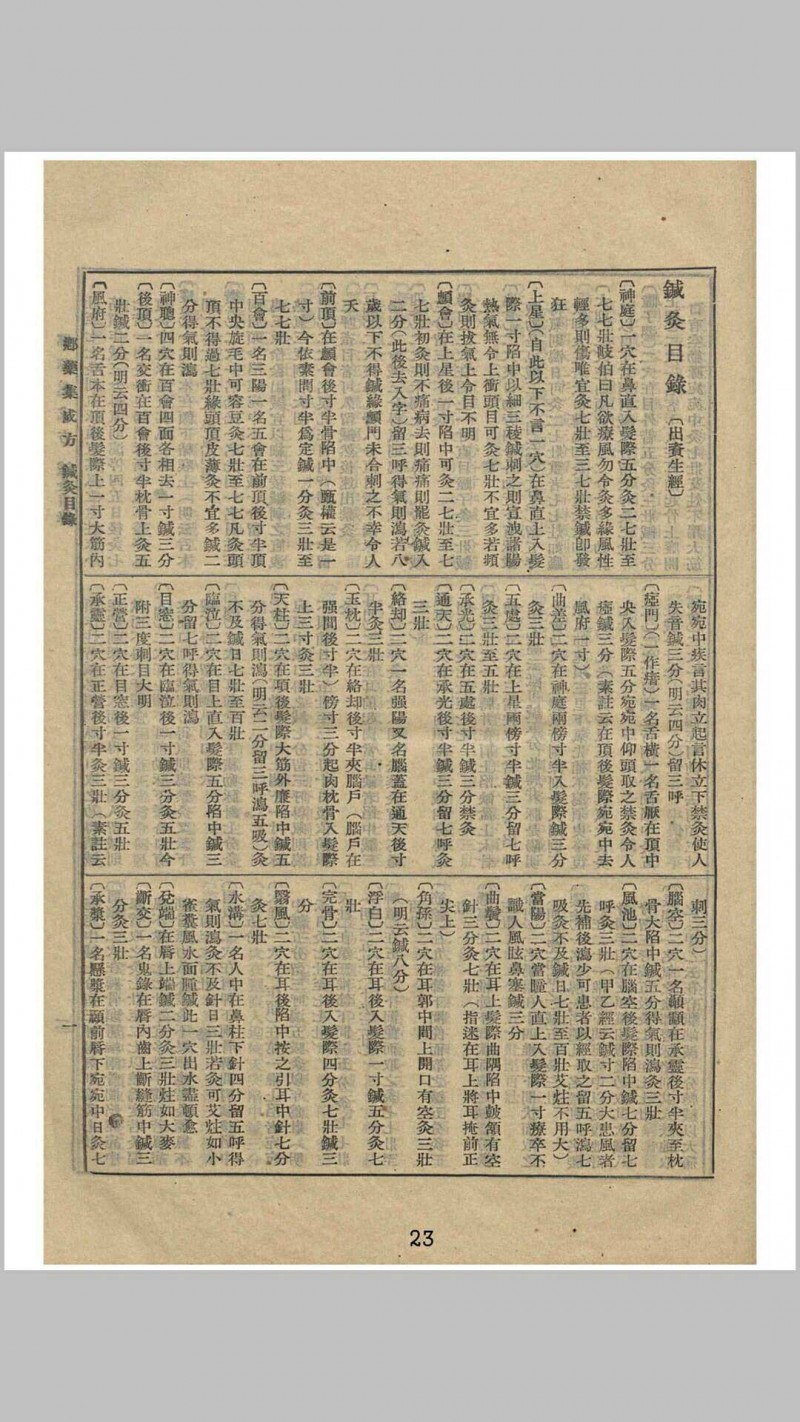 鍼灸目錄〔出資生經〕
〔神庭〕一穴在鼻直入髮際五分灸二七壯至
七七壯岐伯曰凡欲療風勿令灸多緣風性
輕多則傷唯宜灸七壯至三七壯禁鍼卽發
狂
〔上星〕(自此以下不言一穴)在鼻直上入髮
際一寸陷中以細三稜鍼刺之則宣洩諸陽
熱氣無令上衝頭目可灸七壯不宜多若頻
灸則拔氣上令目不明
〔顖會〕在上星後一寸陷中可灸二七壯至七
七壯初灸則不痛病去則痛痛則罷灸鍼入
二分(此後去入字)留三呼得氣則瀉若八
歲以下不得鍼緣顖門未合刺之不幸令人
夭
〔前頂〕在顖會後寸半骨陷中(甄權云是一
寸)今依素問寸半爲定鍼一分灸三壯至
七七壯
〔百會〕一名三陽一名五會在前頂後寸半頂
中央旋毛中可容豆灸七壯至七七凡灸頭
頂不得過七壯緣頭頂皮薄灸不宜多鍼二
分得氣則瀉
〔神聰〕四穴在百會四面各相去一寸鍼三分
〔後頂〕一名交衝在百會後寸半枕骨上灸五
壯鍼二分(明云四分)
〔風府〕一名舌本在頂後髮際上一寸大筋內
宛宛中疾言其肉立起言休立下禁灸使人
失音鍼三分(明云四分)留三呼
〔瘂門〕(一作瘖)一名舌橫一名舌厭在頂中
央入髮際五分宛宛中仰頭取之禁灸令人
瘂鍼三分(素註云在頂後髮際宛宛中去
風府一寸)
〔曲差〕二穴在神庭兩傍寸半入髮際鍼三分
灸三壯
〔五處〕二穴在上星兩傍寸半鍼三分留七呼
灸三壯至五壯
〔承光〕二穴在五處後寸半鍼三分禁灸
〔通天〕二穴在承光後寸半鍼三分留七呼灸
三壯
〔絡却〕二穴一名强陽又名腦蓋在通天後寸
半灸三壯
〔玉枕〕二穴在絡却後寸半夾腦戶(腦戶在
强間後寸半)傍寸三分起肉枕骨入髮際
上三寸灸三壯
〔天柱〕二穴在項後髮際大筋外廉陷中鍼五
分得氣則瀉(明云二分留三呼瀉五吸)灸
不及鍼日七壯至百壯
〔臨泣〕二穴在目上直入髮際五分陷中鍼三
分留七呼得氣則瀉
〔目窓〕二穴在臨泣後一寸鍼三分灸五壯今
附三度刺目大明
〔正營〕二穴在目窓後一寸鍼三分灸五壯
〔承靈〕二穴在正營後寸半灸三壯(素註云
刺三分)
〔腦空〕二穴一名顳顬在承靈後寸半夾至枕
骨大陷中鍼五分得氣則瀉灸三壯
〔風池〕二穴在腦空後髮際陷中鍼七分留七
呼灸三壯(甲乙經云鍼寸二分大患風者
先補後瀉少可患者以經取之留五呼瀉七
吸灸不及鍼日七壯至百壯艾炷不用大)
〔當陽〕二穴當瞳人直上入髮際一寸療卒不
識人風眩鼻塞鍼三分
〔曲鬢〕二穴在耳上髮際曲隅陷中鼓頷有空
針三分灸七壯(指迷在耳上將耳掩前正
尖上)
〔角孫〕二穴在耳郭中間上開口有空灸三壯
(明云鍼八分)
〔浮白〕二穴在耳後入髮際一寸鍼五分灸七
壯
〔完骨〕二穴在耳後入髮際四分灸七壯鍼三
分
〔翳風〕二穴在耳後陷中按之引耳中針七分
灸七壯
〔水溝〕一名人中在鼻柱下針四分留五呼得
氣則瀉灸不及針日三壯若灸可艾炷如小
雀糞風水面腫鍼此一穴出水盡頓愈
〔兌端〕在唇上端鍼二分灸三壯炷如大麥
〔齗交〕一名鬼錄在唇內齒上齗縫筋中鍼三
分灸三壯
〔承漿〕一名懸漿在頤前唇下宛宛中日灸七
鄉藥集成方　鍼灸目錄
一
23